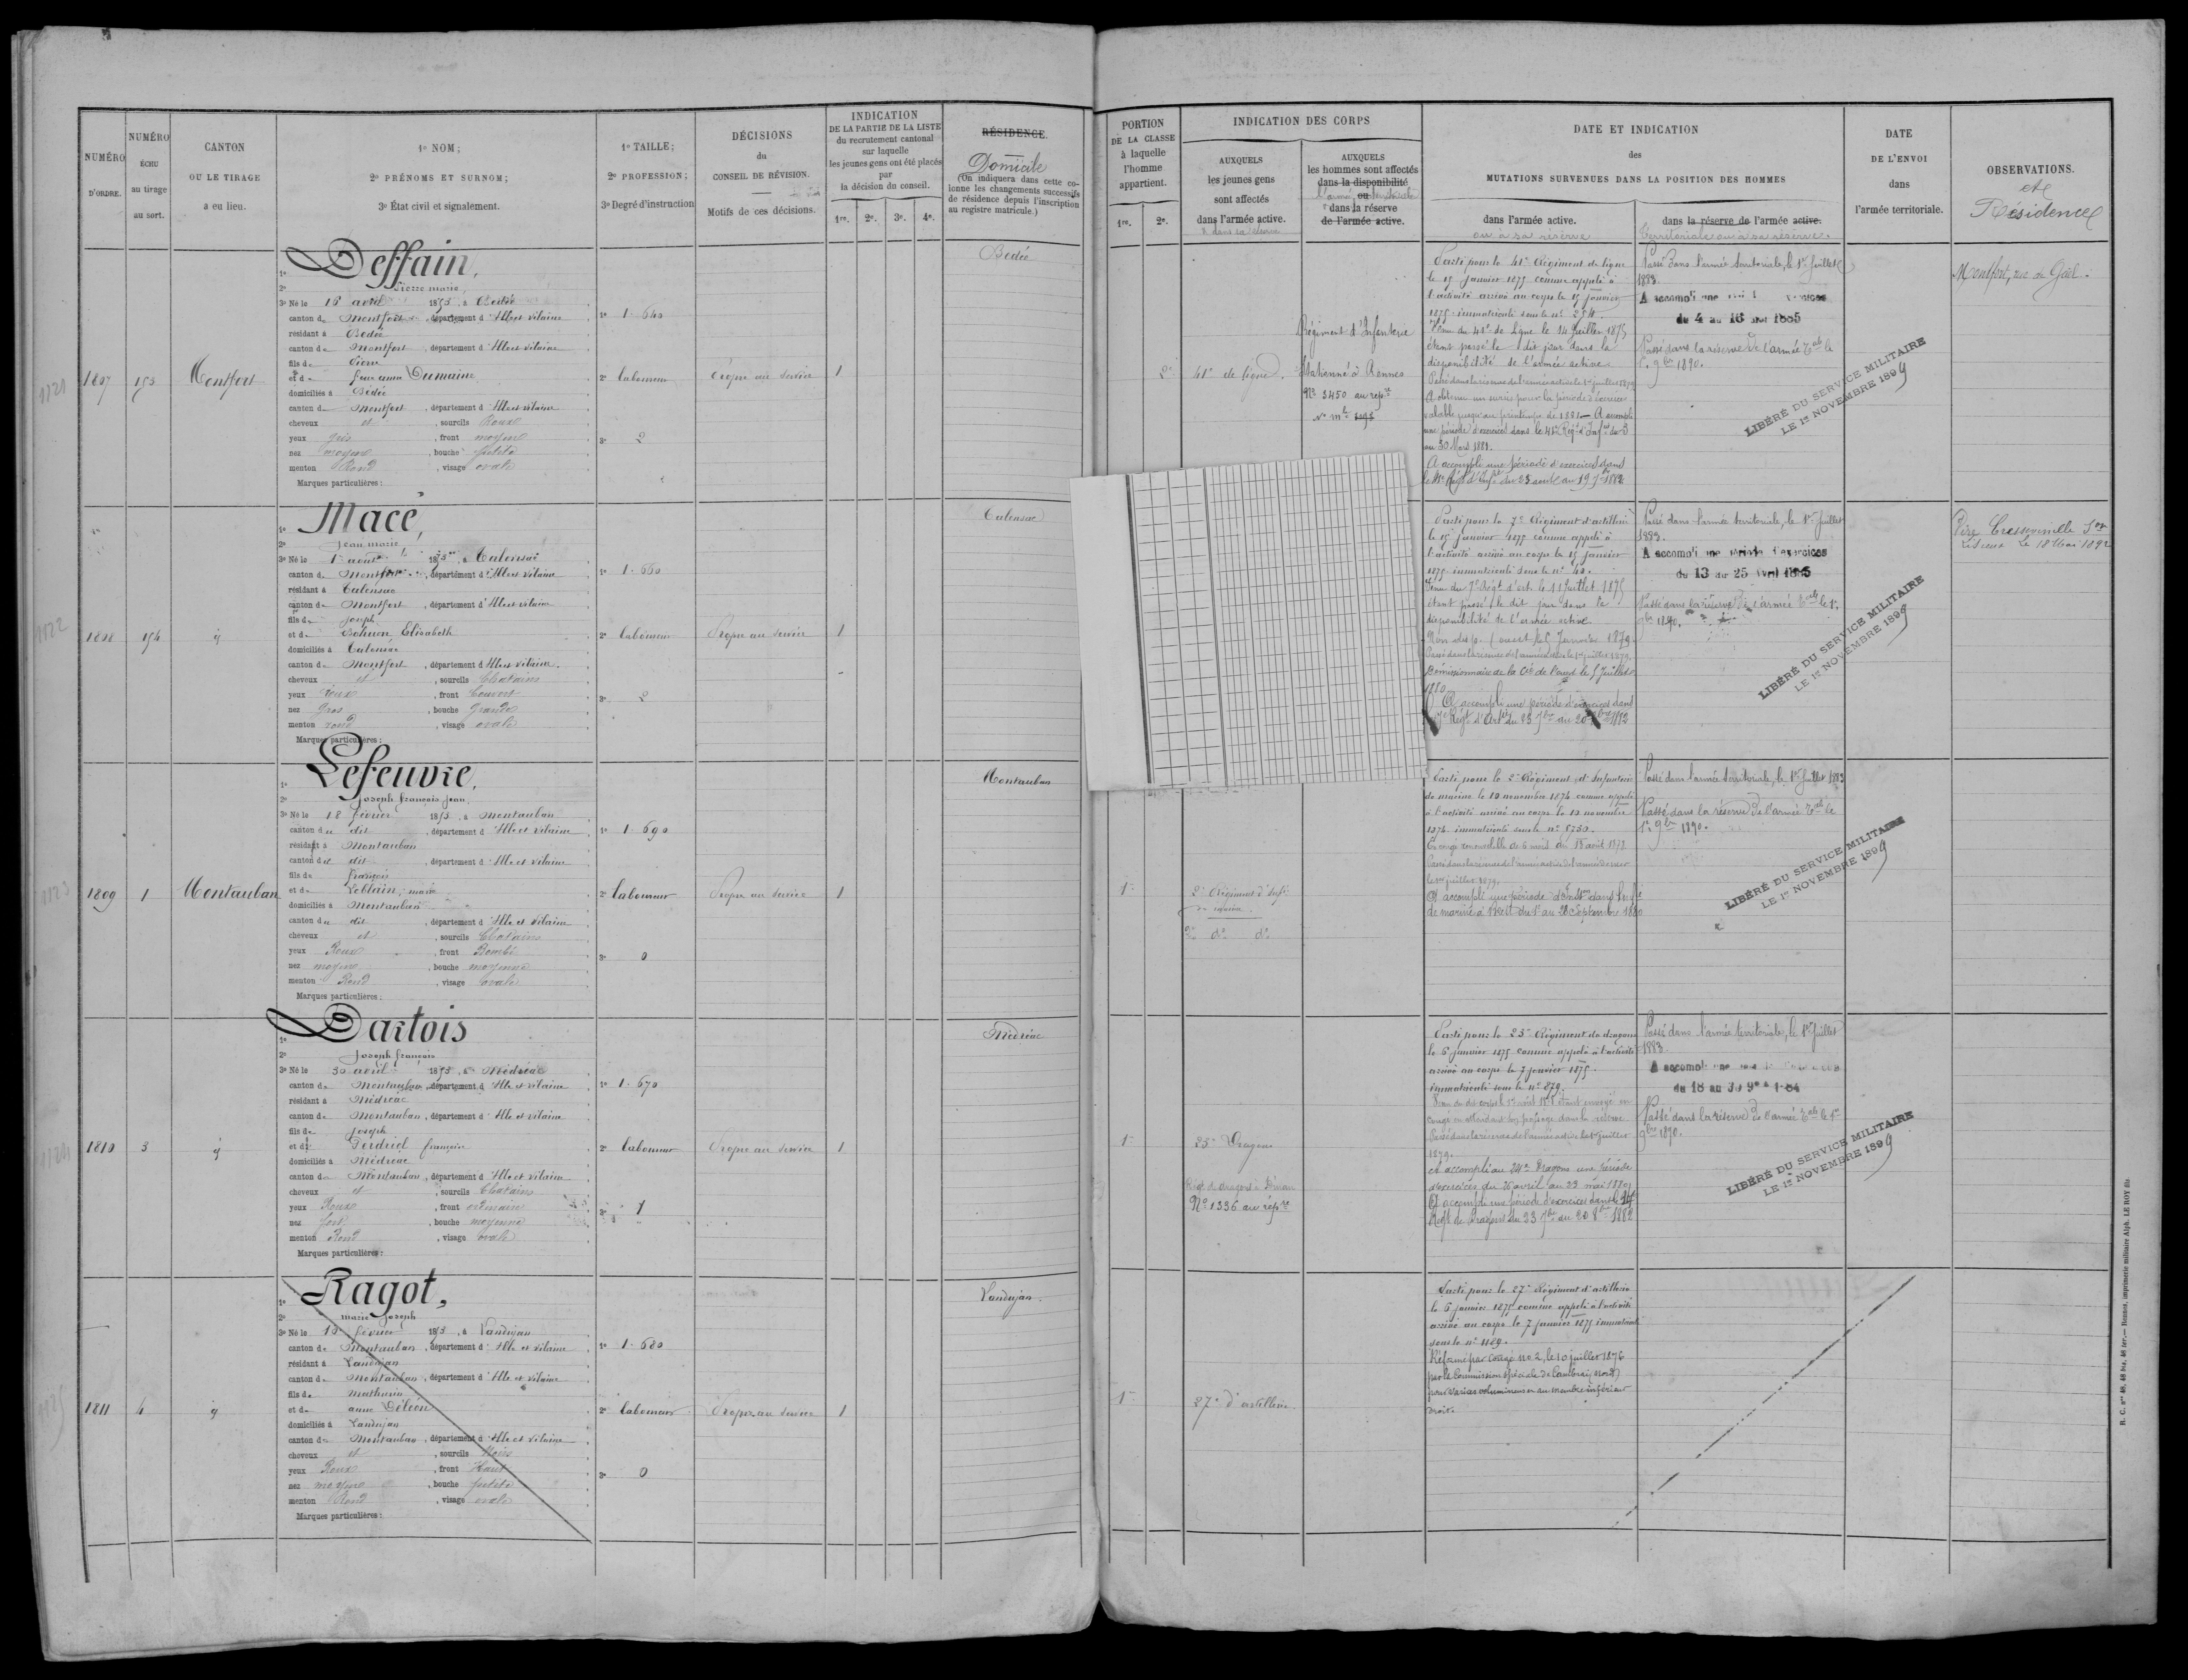 NUMÉRO
D'ORDRE.
NUMÉRO
ÉCHU
au tirage
au sort.
CANTON
OU LE TIRAGE
a eu lieu.
1º NOM;
2º PRÉNOMS ET SURNOM;
3º État civil et signalement.
1º TAILLE;
2º PROFESSION;
3º Degré d'instruction
DÉCISIONS
du
CONSEIL DE RÉVISION.
Motifs de ces décisions.
INDICATION
DE LA PARTIE DE LA LISTE
du recrutement cantonal
sur laquelle
les jeunes gens ont été placés
par
la décision du conseil.
1re. 2e. 3e. 4e.
RÉSIDENCE.
Domicile
(On indiquera dans cette co-
lonne les changements successifs
de résidence depuis l'inscription
au registre matricule.)
1807
153
Montfort
1º Deffain,
2º Pierre marie,
3º Né le 16 avril 1853, à Bédée
canton de Montfort, département d'Ille et vilaine
résidant à Bédée
canton de Montfort, département d'Ille et vilaine
fils de Pierre
et de Jeanne Dumaine
domiciliés à Bédée
canton de Montfort, département d'Ille et vilaine
cheveux et, sourcils Roux
yeux gris, front moyen
nez moyen, bouche petite
menton Rond, visage ovale
Marques particulières:
1º 1.640
2º laboureur
3º 2
Propre au service
1
Bedée
1808
154
id
1º Macé,
2º Jean marie
3º Né le 1er août 1853, à Talensac
canton de Montfort, département d'Ille et vilaine
résidant à Talensac
canton de Montfort, département d'Ille et vilaine
fils de Joseph
et de Elisabeth
domiciliés à Talensac
canton de Montfort, département d'Ille et vilaine.
cheveux et, sourcils Chatains
yeux Roux, front Couvert
nez Gros, bouche Grande
menton rond, visage ovale
Marques particulières:
1º 1.660
2º laboureur
3º 2
Propre au service
1
Talensac
1809
1
Montauban
1º Lefeuvre,
2º Joseph françois Jean,
3º Né le 18 février 1853, à Montauban
canton du dit, département d'Ille et vilaine
résidant à Montauban
canton du dit, département d'Ille et vilaine
fils de françois
et de marie
domiciliés à Montauban
canton du dit, département d'Ille et vilaine
cheveux et, sourcils Chatains
yeux Roux, front Bombé
nez moyen, bouche moyenne
menton Rond, visage ovale
Marques particulières:
1º 1.690
2º laboureur
3º 0
Propre au service
1
Montauban
1810
3
id
1º Dartois
2º Joseph françois
3º Né le 30 avril 1853, à Médréac
canton de Montauban, département d'Ille et vilaine
résidant à Médréac
canton de Montauban, département d'Ille et vilaine
fils de Joseph
et de Perdriel françoise
domiciliés à Médréac
canton de Montauban, département d'Ille et vilaine
cheveux et, sourcils Chatains
yeux Roux, front ordinaire
nez fort, bouche moyenne
menton Rond, visage ovale
Marques particulières:
1º 1.670
2º laboureur
3º 1
Propre au service
1
Médréac
1811
4
id
1º Ragot,
2º marie Joseph
3º Né le février 1853, à Landujan
canton de Montauban, département d'Ille et vilaine
résidant à Landujan
canton de Montauban, département d'Ille et vilaine
fils de Mathurin
et de anne Déléon
domiciliés à Landujan
canton de Montauban, département d'Ille et vilaine
cheveux et, sourcils Noirs
yeux Roux, front Haut
nez moyen, bouche petite
menton Rond, visage ovale
Marques particulières:
1º 1.680
2º laboureur
3º 0
Propre au service
1
Landujan.
PORTION
DE LA CLASSE
à laquelle
l'homme
appartient.
1re. 2e.
INDICATION DES CORPS
AUXQUELS
les jeunes gens
sont affectés
dans l'armée active.
& dans sa réserve
AUXQUELS
les hommes sont affectés
dans la disponibilité
ou
dans la réserve
de l'armée active.
DATE ET INDICATION
des
MUTATIONS SURVENUES DANS LA POSITION DES HOMMES
dans l'armée active.
ou à sa réserve
dans la réserve de l'armée active.
territoriale ou à sa réserve.
DATE
DE L'ENVOI
dans
l'armée territoriale.
OBSERVATIONS.
et
Résidence
2e
41e de ligne.
Régiment d'Infanterie
stationné à Rennes
No 3450 au répre
Parti pour le 41e Régiment de ligne
le 15 janvier 1875 comme appelé à
l'activité arrivé au corps le 15 janvier
1875 immatriculé sous le no 254.
Venu du 41e de ligne le 14 Juillet 1875
étant passé le dit jour dans la
disponibilité de l'armée active
Passé dans la réserve de l'armée active le 1er juillet 1879
A obtenu un sursis pour la période d'exercices
valable jusqu'au printemps de 1881 – A accompli
une période d'exercices dans le 41e Régt d'Infie du 3
au 30 Mars 1881.
A accompli une période d'exercices dans
Passé dans l'armée territoriale, le 1er Juillet
1883.
du 4 au 16 mai 1885
Passé dans la réserve de l'armée Tale le
1er 9bre 1890.
LIBÉRÉ DU SERVICE MILITAIRE
LE 1er NOVEMBRE 1899
Montfort, rue de Gaël.
Parti pour le 7e Régiment d'artillerie
le 15 janvier 1875 comme appelé à
l'activité arrivé au corps le 15 janvier
1875 immatriculé sous le no 40.
Venu du 7e Régt d'art. le 11 Juillet 1875
étant passé le dit jour dans la
disponibilité de l'armée active
Passé dans la réserve de l'armée active le 1er juillet 1879.
Démissionnaire de la Cie de l'ouest le 5 Juillet
1880
A accompli une période d'exercices dans
Passé dans l'armée territoriale, le 1er Juillet
1883.
A accompli une période d'exercices
du 13 au 25 Avril 1885
Passé dans la réserve de l'armée Tale le 1er
9bre 1890.
LIBÉRÉ DU SERVICE MILITAIRE
LE 1er NOVEMBRE 1899
le 18 Mai 1892
1re
2e Régiment d'Infie
de marine.
do do
Parti pour le 2e Régiment d'Infanterie
de marine le 10 novembre 1874 comme appelé
à l'activité arrivé au corps le 12 novembre
1874 immatriculé sous le no 5730.
Passé dans la réserve de l'armée active
le 1er juillet 1879.
A accompli une période d'Instrn dans l'infie
de marine à Brest du 1er au 28 Septembre 1880
Passé dans l'armée territoriale, le 1er Juillet 1883
Passé dans la réserve de l'armée Tale le
1er 9bre 1890.
LIBÉRÉ DU SERVICE MILITAIRE
LE 1er NOVEMBRE 1899
1re
23e Dragons
Régt de dragons à Dinan
No 1336 au répre
Parti pour le 23e Régiment de dragons
le 6 janvier 1875 comme appelé à l'activité
arrivé au corps le 7 janvier 1875.
immatriculé sous le no 879.
congé en attendant son passage dans la réserve
Passé dans la réserve de l'armée active le 1er juillet
1879.
A accompli au 24e Dragons une période
d'exercices du 26 avril au 23 mai 1880
A accompli une période d'exercices dans le 24e
Régt de Dragons du 23 7bre au 20 8bre 1882
Passé dans l'armée territoriale, le 1er Juillet
1883.
du 18 au 30 9bre 1884
Passé dans la réserve de l'armée Tale le 1er
9bre 1890.
LIBÉRÉ DU SERVICE MILITAIRE
LE 1er NOVEMBRE 1899
1re
27e d'artillerie
Parti pour le 27e Régiment d'artillerie
le 6 janvier 1875 comme appelé à l'activité
arrivé au corps le 7 janvier 1875 immatriculé
sous le no 1189.
Réformé par congé no 2, le 10 juillet 1876
par la Commission spéciale de Cambrai (Nord)
pour varices volumineuses au membre inférieur
droit.
R. C. nos 48, 48 bis, 48 ter. — Rennes, imprimerie militaire Alph. LE ROY fils